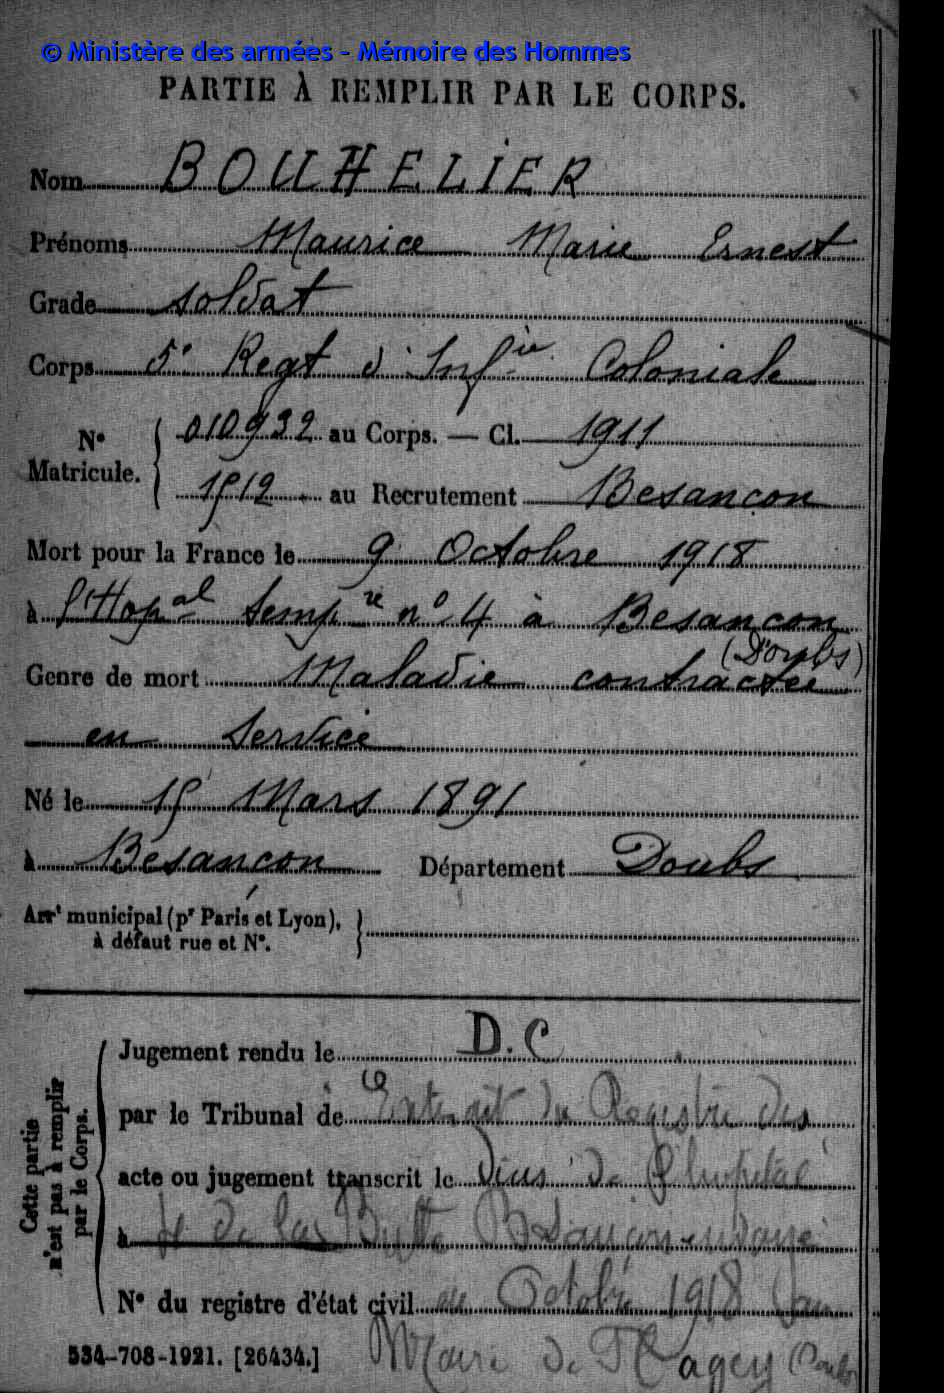 © Ministère des armées - Mémoire des Hommes
PARTIE À REMPLIR PAR LE CORPS.
Nom BOUHELIER
Prénoms Maurice Marie Ernest
Grade soldat
Corps 5e Regt d'Infie Coloniale
N° Matricule. 010932 au Corps. — Cl. 1911
1512 au Recrutement Besançon
Mort pour la France le 9 Octobre 1918
à l'Hopal temp re n° 4 à Besançon
(Doubs)
Genre de mort Maladie contractée
en service
Né le 15 Mars 1891
à Besançon Département Doubs
Arrt municipal (pr Paris et Lyon),
à défaut rue et N°.
Cette partie n'est pas à remplir par le Corps.
Jugement rendu le D.C
par le Tribunal de Extrait du Registre des
acte ou jugement transcrit le de l'hopital
à de la Butte Besançon envoyé
N° du registre d'état civil Octobre 1918
534-708-1921. [26434.] Maire de (Doubs)